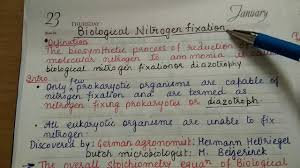 23 THURSDAY January
Biological Nitrogen fixation
• Definition
The biosynthetic process of reduction of
molecular nitrogen to ammonia is
biological nitrogen fixation or diazotrophy
Intro
• Only few prokaryotic organisms are capable of
nitrogen fixation and are termed as
nitrogen fixing prokaryotes or diazotroph.
• All eukaryotic organisms are unable to fix
nitrogen.
Discovered by: German agronomist: Hermann Hellriegel
Dutch microbiologist: M. Beijerinck
• The overall stoichiometry equa of Biological